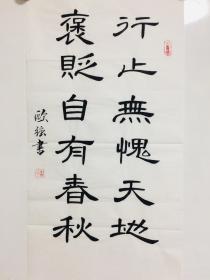 行止無愧天地
褒貶自有春秋
歐強書